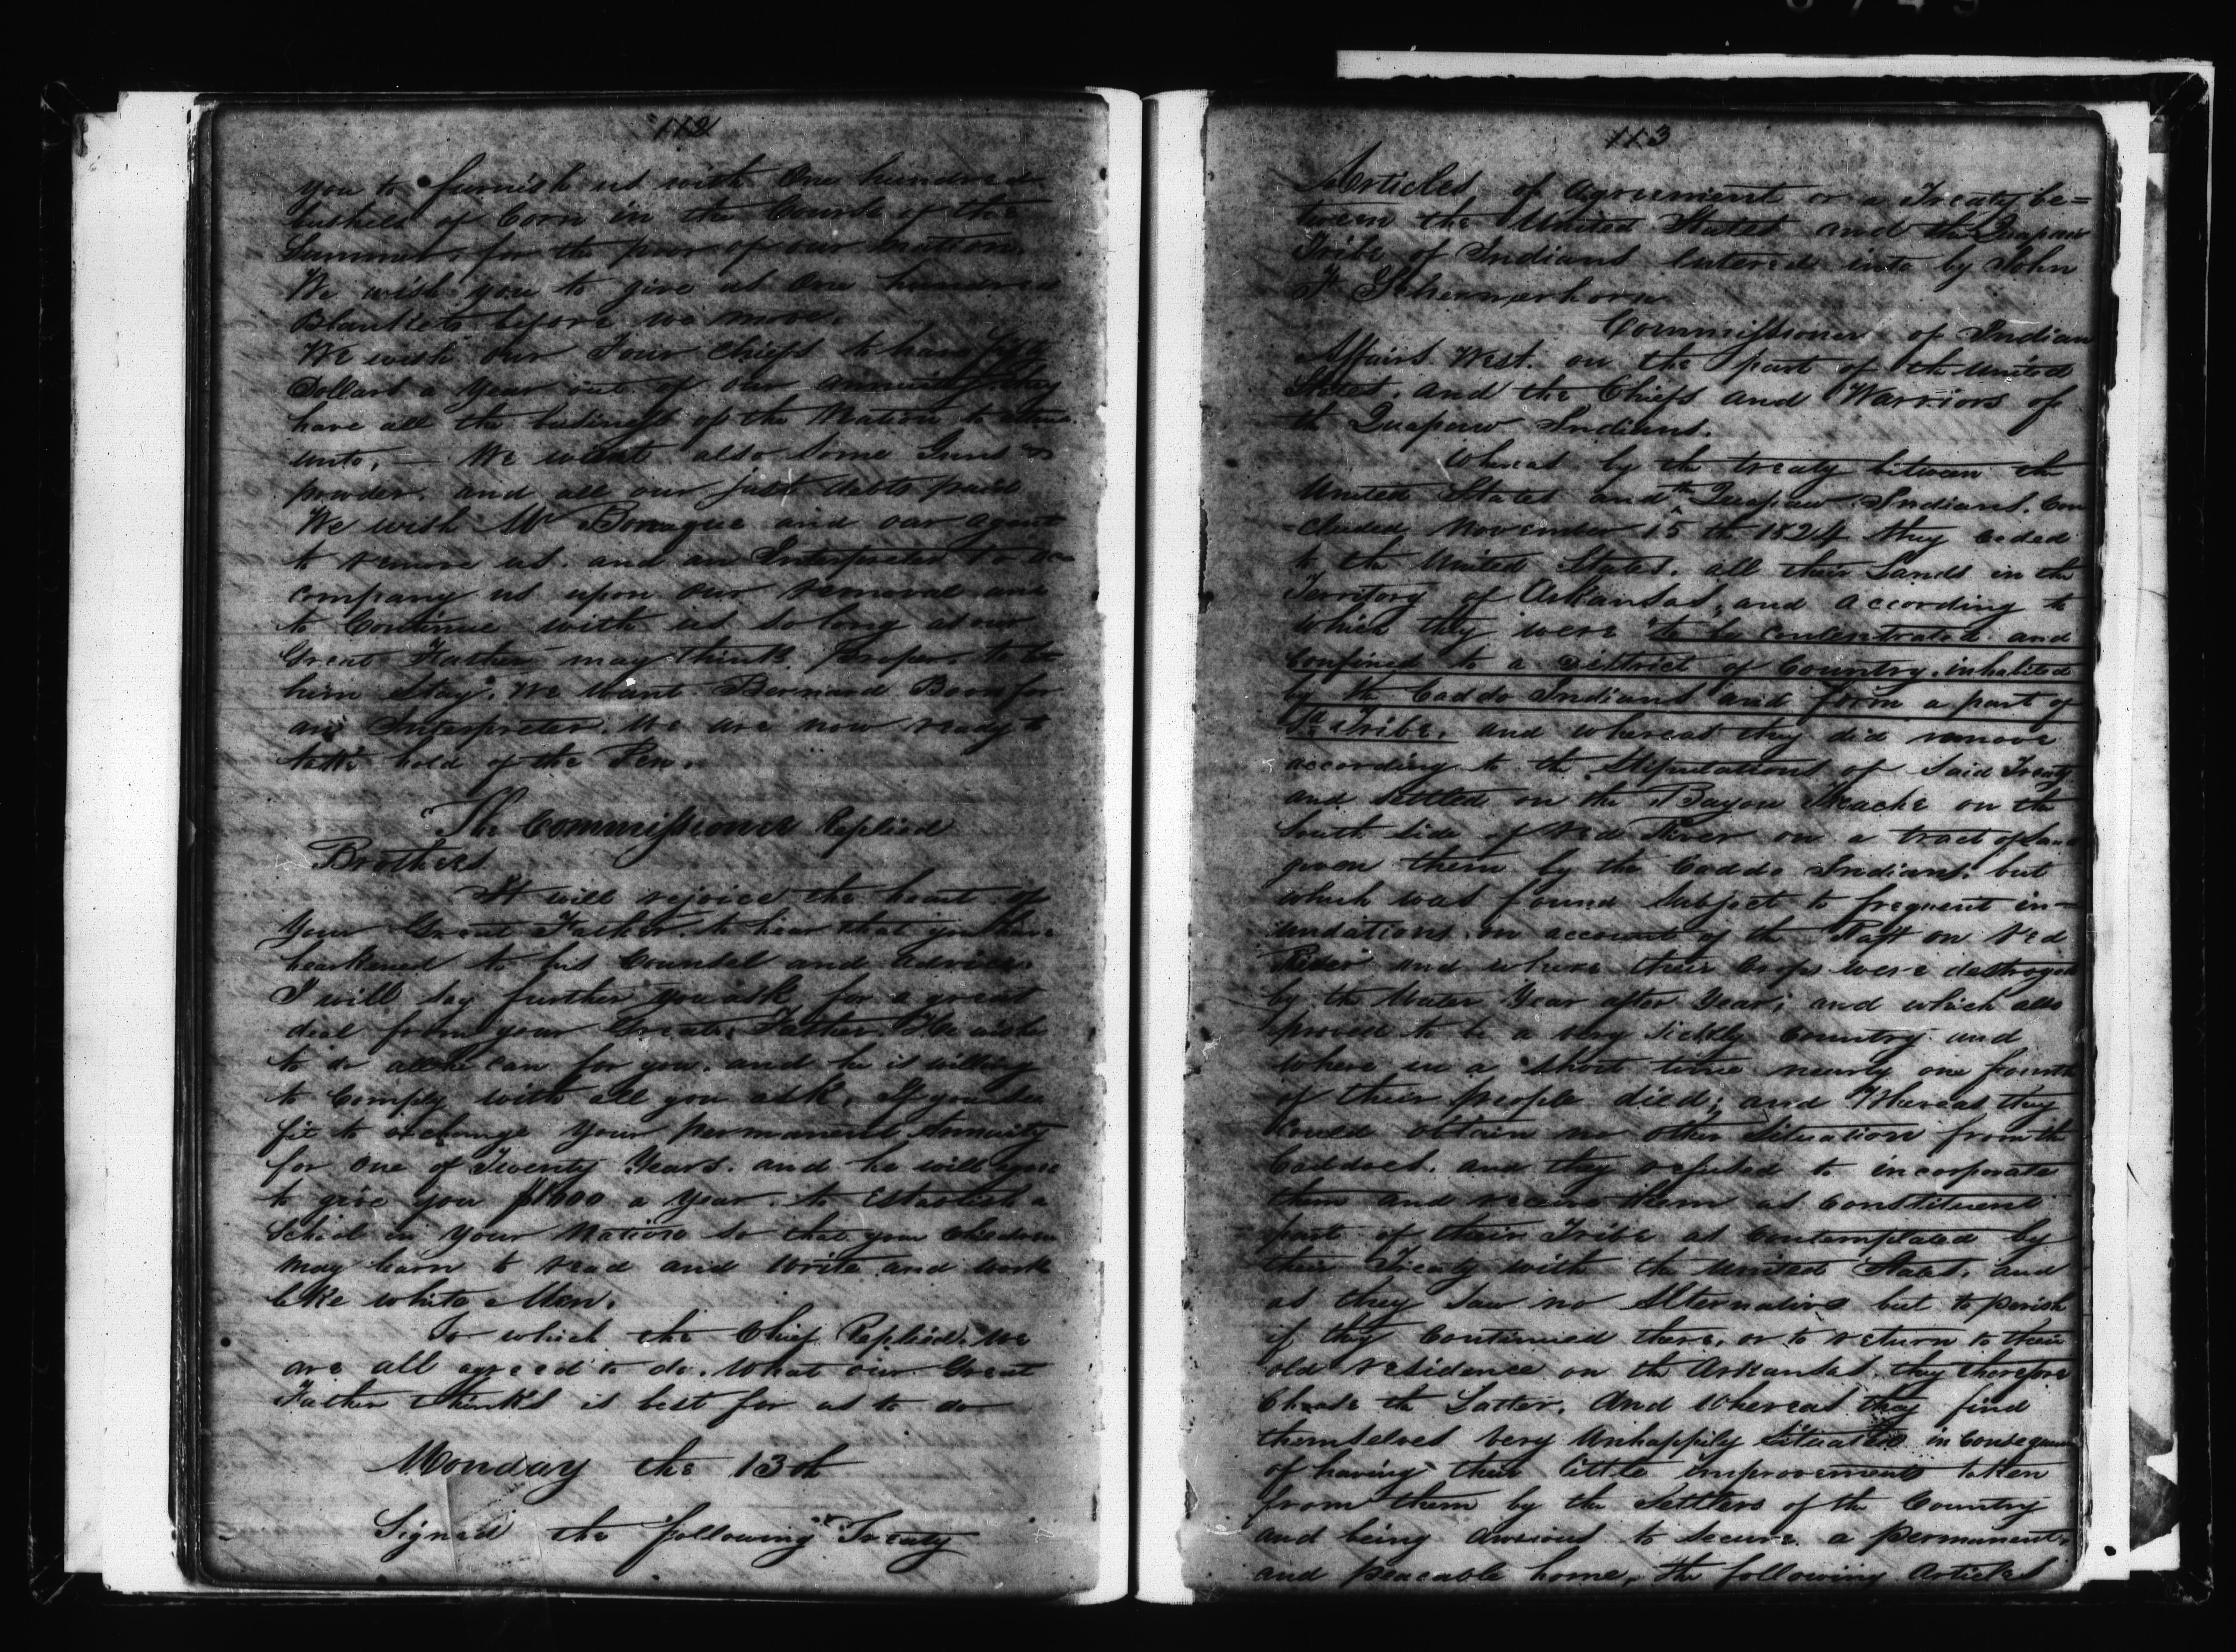 112
you to furnish us with One hundred
bushels of Corn in the Course of the
Summer, for the poor of our nation.
We wish you to give us One hundred
Blankets before we move.
We wish our Four Chiefs to have Fifty
Dollars a Year out of our annuity they
have all the business of the Nation to
unto, — We want also some Guns &
powder, and all our just debts paid
We wish Mr and our agent
to remove us, and an Interpreter to ac=
company us upon our removal and
to Continue with us so long as our
Great Father may think proper to let
him Stay. We want Bernard for
an Interpreter. We are now ready to
take hold of the Pen.
The Commissioner Replied
Brothers
It will rejoice the heart of
Your Great Father, to hear that you have
hearkened to his Counsel and advice.
I will say further you ask for a great
deal from your Great Father. He wishes
to do all he can for you, and he is willing
to Comply with all you ask, If you see
fit to exchange Your permanent Annuity
for one of Twenty Years. and he will
to give you $1000 a Year, to Establish a
School in Your Nation so that your Children
may learn to read and write and work
like white Men.
To which the Chief Replied. We
are all agreed to do, what our Great
Father thinks is best for us to do
Monday the 13th
Signed the following Treaty
113
Articles of Agreement or a Treaty be=
tween the United States and the Quapaw
Tribe of Indians Entered into by John
F Schermerhorn
Commissioner of Indian
Affairs West. on the part of the United
States, and the Chiefs and Warriors of
the Quapaw Indians.
Whereas by the treaty between the
United States and the Quapaw Indians, Con
=cluded November 15th 1824 they ceded
to the United States, all their Lands in the
Territory of Arkansas, and according to
which they were to be concentrated and
Confined to a District of Country, inhabited
by the Caddo Indians and form a part of
Sd Tribe, and whereas they did remove
according to the Stipulations of Said Treaty
and settled on the Bayou Treache on the
South Side of Red River on a tract of land
given them by the Caddo Indians, but
which was found Subject to frequent in=
undations on account of the Raft on Red
River and where their Crops were destroyed
by the Water Year after Year; and which also
proved to be a very Sickly Country and
where in a Short time nearly one fourth
of their people died; and Whereas they
Could obtain no other Situation from the
Caddoes, and they refused to incorporate
them and receive them as Constituent
part of their Tribe as Contemplated by
their Treaty with the United States, and
as they Saw no Alternative but to perish
if they Continued there, or to return to their
old residence on the Arkansas, they therefore
Chose the Latter. And Whereas they find
themselves very Unhappily Situated in Consequence
of having their little improvements taken
from them by the Settlers of the Country
and being anxious to secure a permanent
and peacable home, the following Articles